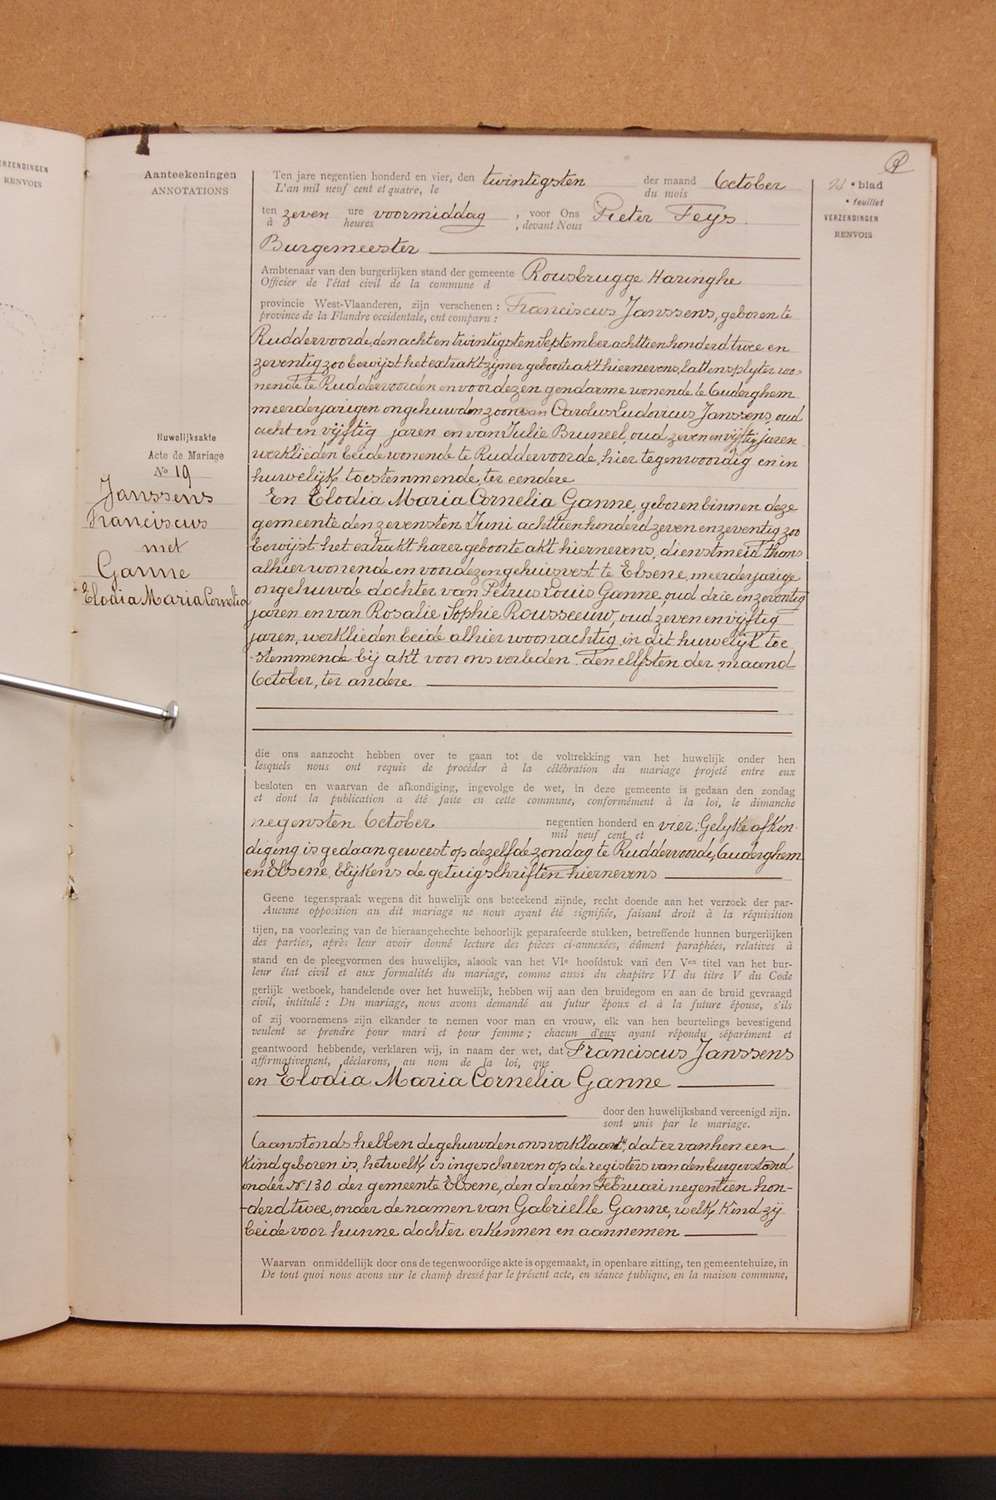 VERZENDINGEN
RENVOIS
Aanteekeningen
ANNOTATIONS
Ten jare negentien honderd en vier, den twintigsten der maand October
L'an mil neuf cent et quatre, le du mois
ten zeven ure voormiddag, voor Ons Pieter Feys
à heures , devant Nous
Burgemeester
Ambtenaar van den burgerlijken stand der gemeente Rousbrugge Haringhe
Officier de l'état civil de la commune d
provincie West-Vlaanderen, zijn verschenen : Franciscus Janssens, geboren te
province de la Flandre occidentale, ont comparu :
Ruddervoorde, den acht en twintigsten September achttien honderd twee en
zeventig zoo bewijst het extrakt zijner geboorteakt hiernevens, lattensplyter wo-
nende te Ruddervoorde en voordezen gendarme wonende te Auderghem
meerderjarigen ongehuwden zoon van Carolus Ludovicus Janssens, oud
acht en vijftig jaren en van Julie Bruneel, oud zeven en vijftig jaren
werklieden beide wonende te Ruddervoorde, hier tegenwoordig en in
huwelijk toestemmende, ter eendere
En Elodia Maria Cornelia Ganne, geboren binnen deze
gemeente den zevensten Juni achttien honderd zeven en zeventig zoo
bewijst het extrakt harer geboorte akt hiernevens, dienstmeid thans
alhier wonende en voordezen gehuisvest te Elsene, meerderjarige
ongehuwde dochter van Petrus Louis Ganne, oud drie en zeventig
jaren en van Rosalie Sophie Rousseeuw, oud zeven en vijftig
jaren, werklieden beide alhier woonachtig, in dit huwelijk toe
-stemmende bij akt voor ons verleden den elfsten der maand
October, ter andere
Huwelijksakte
Acte de Mariage
No 19
Janssens
Franciscus
met
Ganne
Elodia Maria Cornelia
die ons aanzocht hebben over te gaan tot de voltrekking van het huwelijk onder hen
lesquels nous ont requis de procéder à la célébration du mariage projeté entre eux
besloten en waarvan de afkondiging, ingevolge de wet, in deze gemeente is gedaan den zondag
et dont la publication a été faite en cette commune, conformément à la loi, le dimanche
negensten October negentien honderd en vier. Gelijke afkon-
mil neuf cent et
diging is gedaan geweest op dezelfde zondag te Ruddervoorde, Auderghem
en Elsene, blijkens de getuigschriften hiernevens
Geene tegenspraak wegens dit huwelijk ons beteekend zijnde, recht doende aan het verzoek der par-
Aucune opposition au dit mariage ne nous ayant été signifiée, faisant droit à la réquisition
tijen, na voorlezing van de hieraangehechte behoorlijk geparafeerde stukken, betreffende hunnen burgerlijken
des parties, après leur avoir donné lecture des pièces ci-annexées, dûment paraphées, relatives à
stand en de pleegvormen des huwelijks, alsook van het VIe hoofdstuk van den Ven titel van het bur-
leur état civil et aux formalités du mariage, comme aussi du chapitre VI du titre V du Code
gerlijk wetboek, handelende over het huwelijk, hebben wij aan den bruidegom en aan de bruid gevraagd
civil, intitulé : Du mariage, nous avons demandé au futur époux et à la future épouse, s'ils
of zij voornemens zijn elkander te nemen voor man en vrouw, elk van hen beurtelings bevestigend
veulent se prendre pour mari et pour femme ; chacun d'eux ayant répondu séparément et
geantwoord hebbende, verklaren wij, in naam der wet, dat Franciscus Janssens
affirmativement, déclarons, au nom de la loi, que
en Elodia Maria Cornelia Ganne
door den huwelijksband vereenigd zijn.
sont unis par le mariage.
Aanstonds hebben de gehuwden ons verklaard, dat er van hen een
kind geboren is, hetwelk is ingeschreven op de registers van den burgerstand
onder No 130 der gemeente Elsene, den derden Februari negentien hon-
-derd twee, onder de namen van Gabrielle Ganne, welk kind zij
beide voor hunne dochter erkennen en aannemen
Waarvan onmiddellijk door ons de tegenwoordige akte is opgemaakt, in openbare zitting, ten gemeentehuize, in
De tout quoi nous avons sur le champ dressé par le présent acte, en séance publique, en la maison commune,
e blad
e feuillet
VERZENDINGEN
RENVOIS